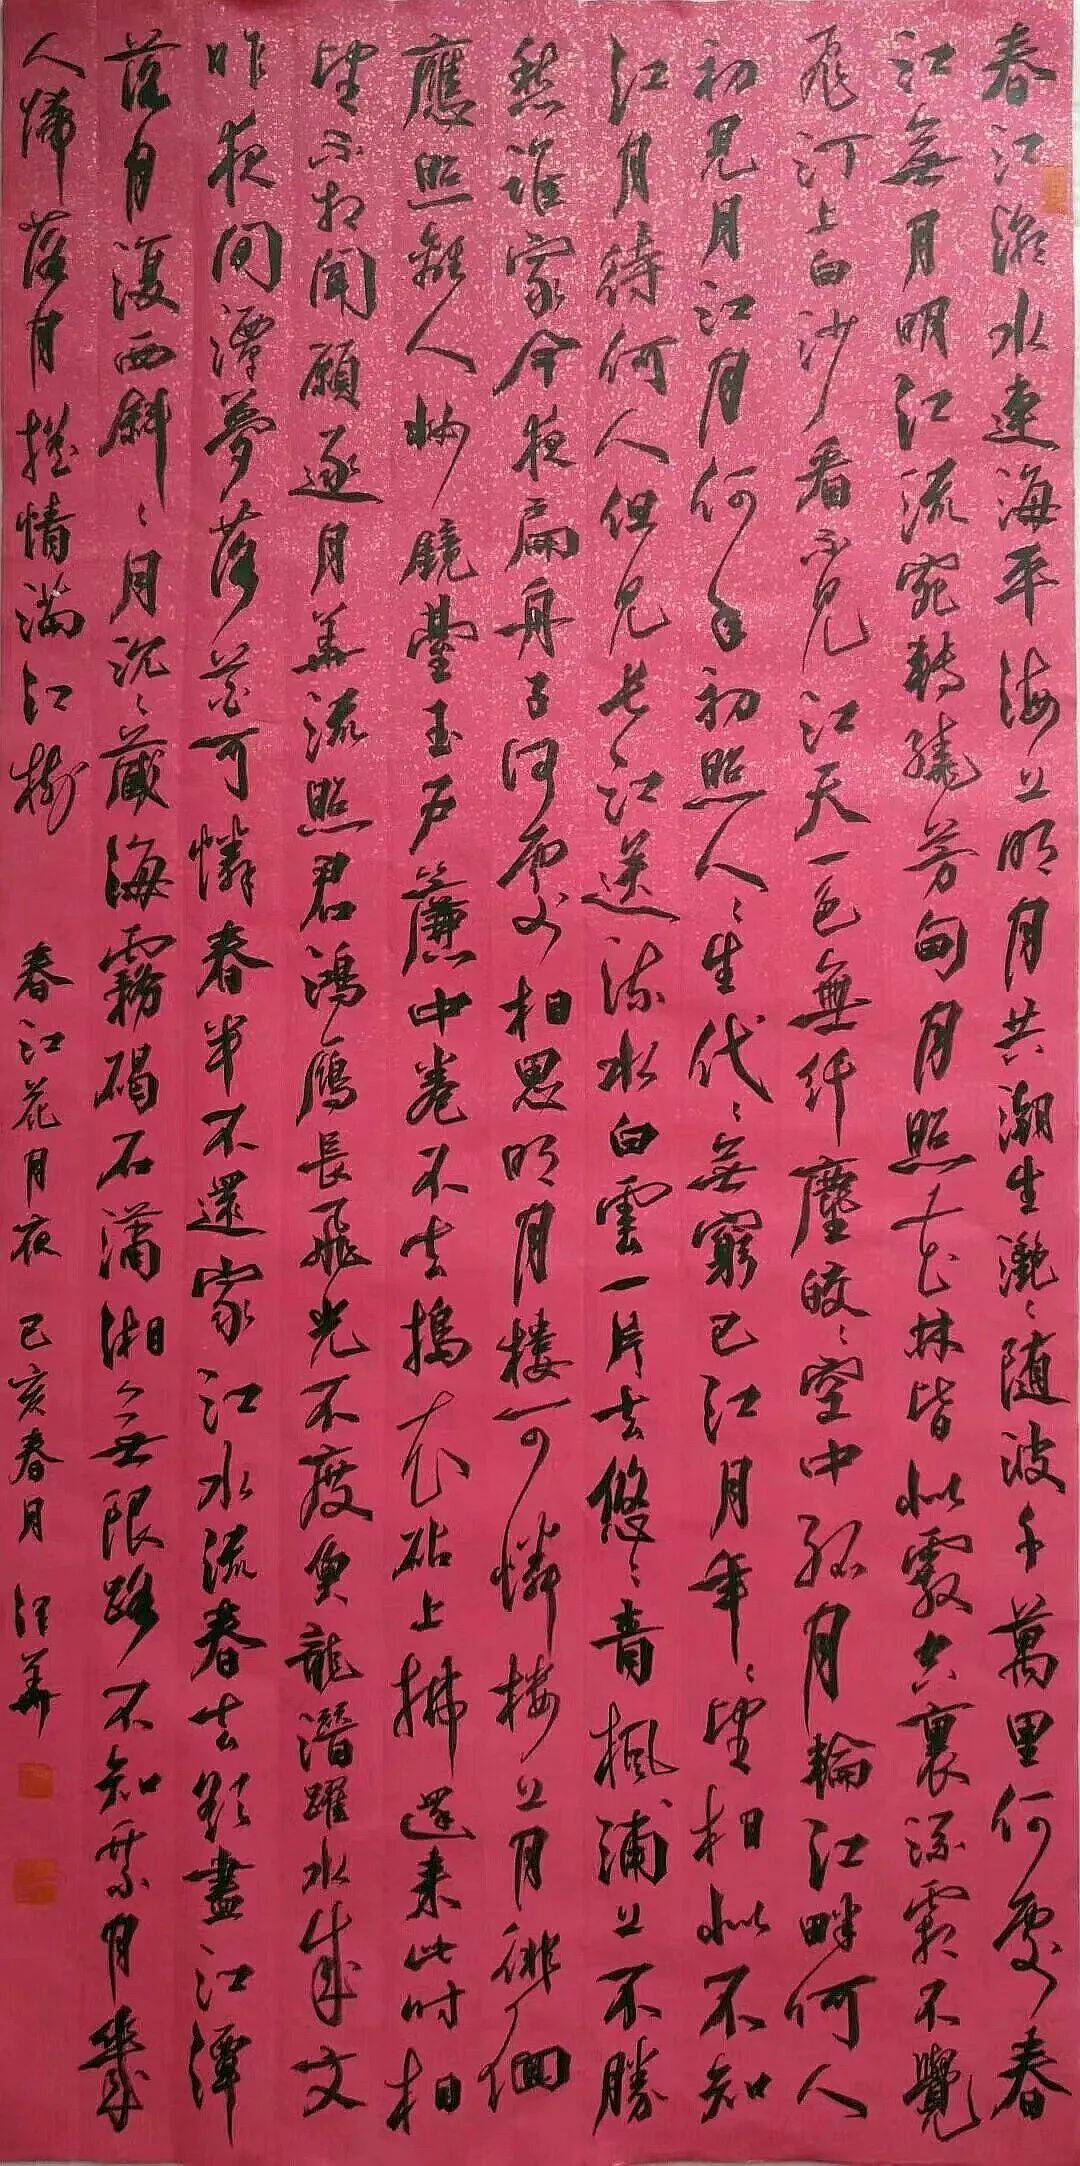 春江潮水連海平海上明月共潮生灧〻随波千萬里何處春
江無月明江流宛轉繞芳甸月照花林皆似霰空裏流霜不覺
飛汀上白沙看不見江天一色無纤塵皎〻空中孤月輪江畔何人
初見月江月何年初照人〻生代〻無窮已江月年〻望相似不知
江月待何人但見長江送流水白雲一片去悠〻青楓浦上不勝
愁誰家今夜扁舟子何處相思明月楼可憐楼上月徘徊
應照離人妝鏡臺玉戶簾中卷不去搗衣砧上拂還来此時相
望不相聞願逐月華流照君鴻雁長飛光不度魚龍潛躍水成文
昨夜閒潭夢落花可憐春半不還家江水流春去欲盡江潭
落月復西斜〻月沉〻藏海霧碣石潇湘無限路不知乘月幾
人歸落月摇情滿江樹 春江花月夜 己亥春月 汪華